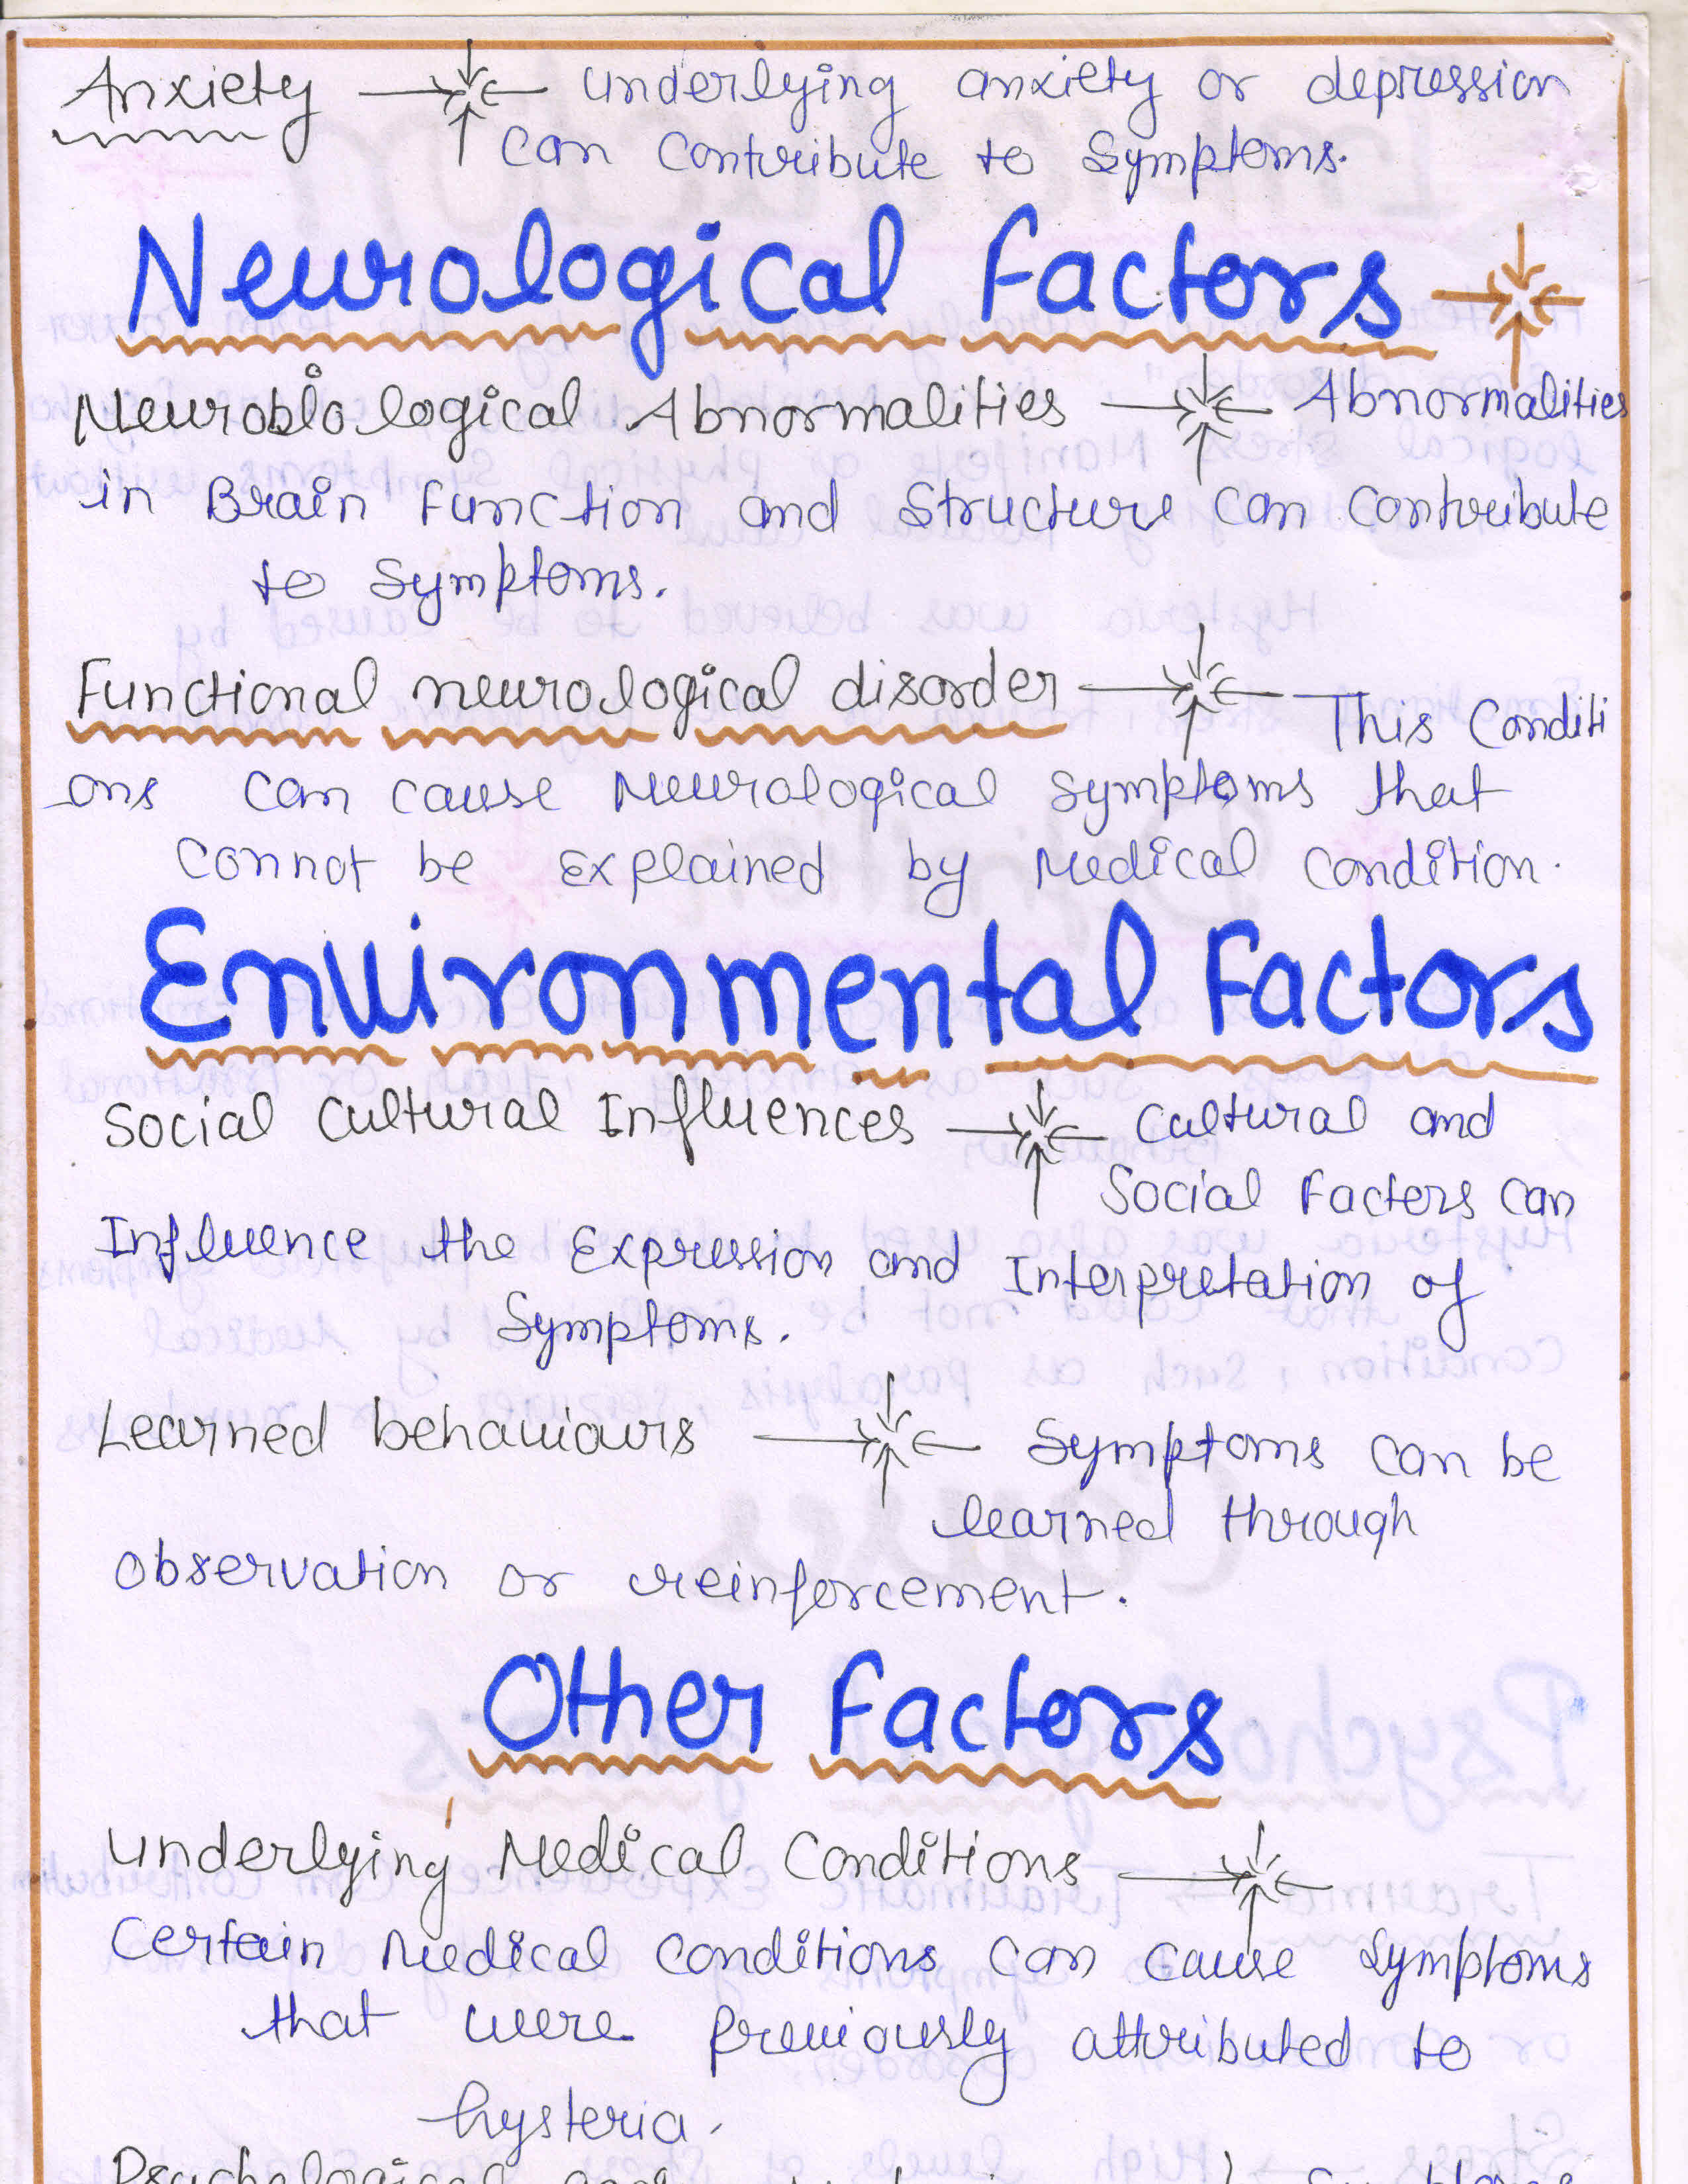 Anxiety underlying anxiety or depression
can contribute to symptoms.
Neurological Factors
Neurobiological Abnormalities Abnormalities
in Brain Function and Structure can contribute
to symptoms.
Functional neurological disorder This Conditi
ons can cause Neurological symptoms that
connot be explained by Medical condition.
Environmental Factors
Social Cultural Influences Cultural and
Social Factors can
Influence the Expression and Interpretation of
Symptoms.
Learned behaviours Symptoms can be
learned through
observation or reinforcement.
Other Factors
Underlying Medical Conditions
Certain Medical conditions can cause symptoms
that were previously attributed to
hysteria.
Psychological